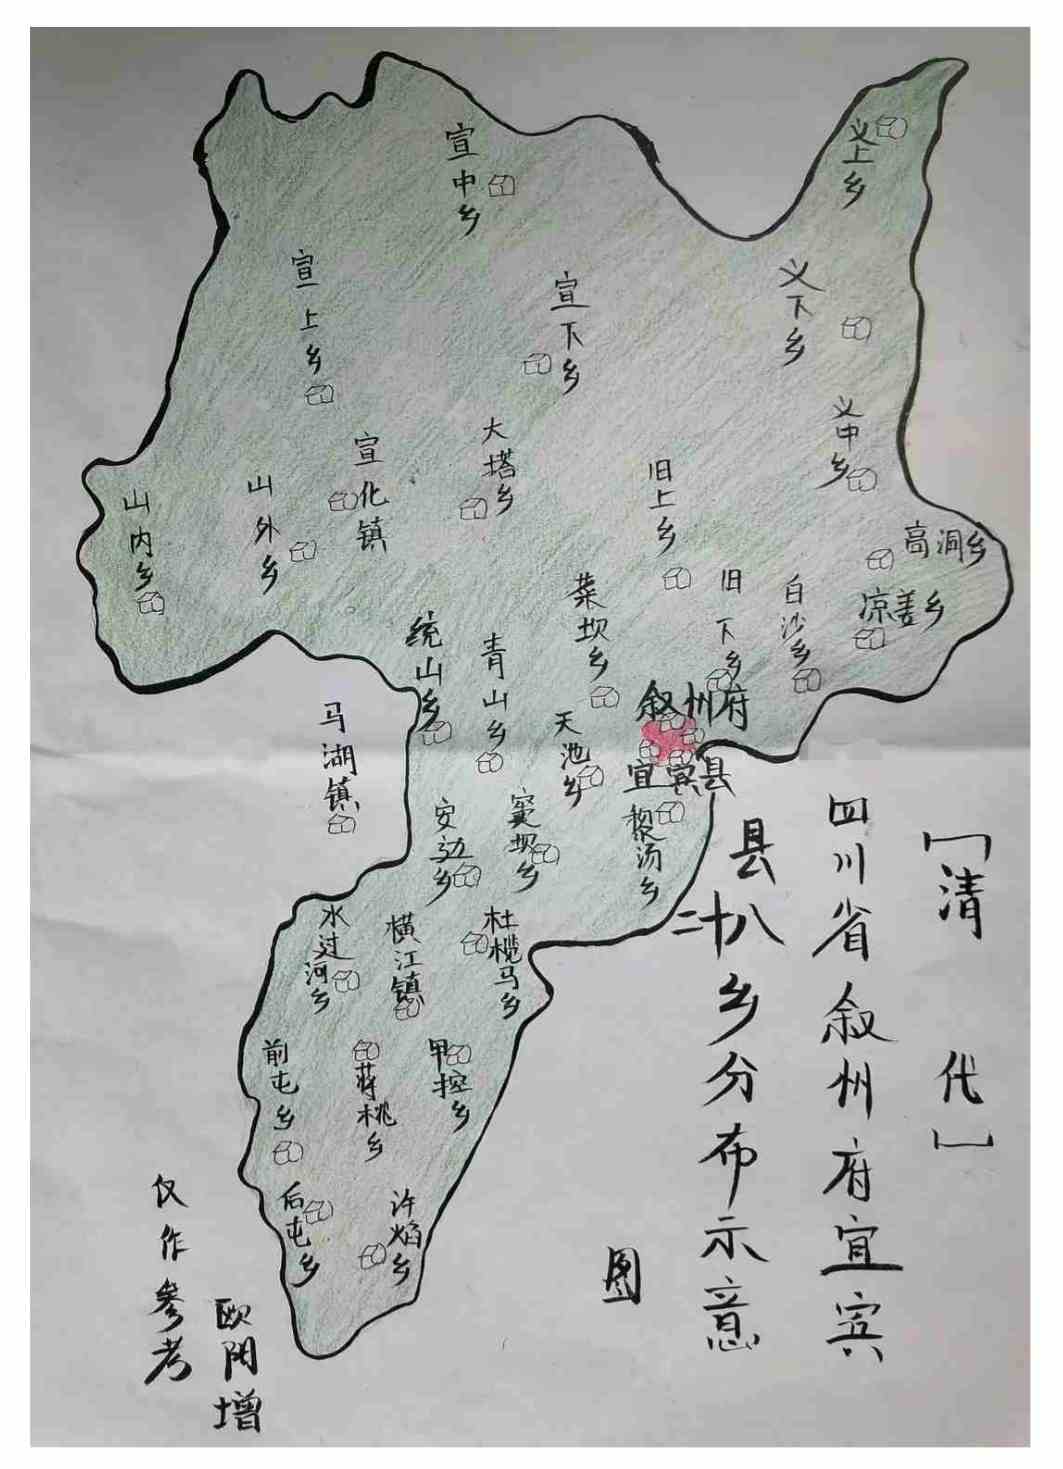 [清代]
四川省叙州府宜宾
县二十八乡分布示意
图
义上乡
宣中乡
宣上乡
宣下乡
义下乡
义中乡
大塔乡
宣化镇
旧上乡
山外乡
山内乡
高洞乡
凉姜乡
白沙乡
旧下乡
菜坝乡
统山乡
青山乡
叙州府
宜宾县
天池乡
马湖镇
安边乡
窦坝乡
黎汤乡
水过河乡
横江镇
杜榄马乡
前屯乡
蒋桃乡
甲控乡
后屯乡
许焰乡
仅作参考
欧阳增